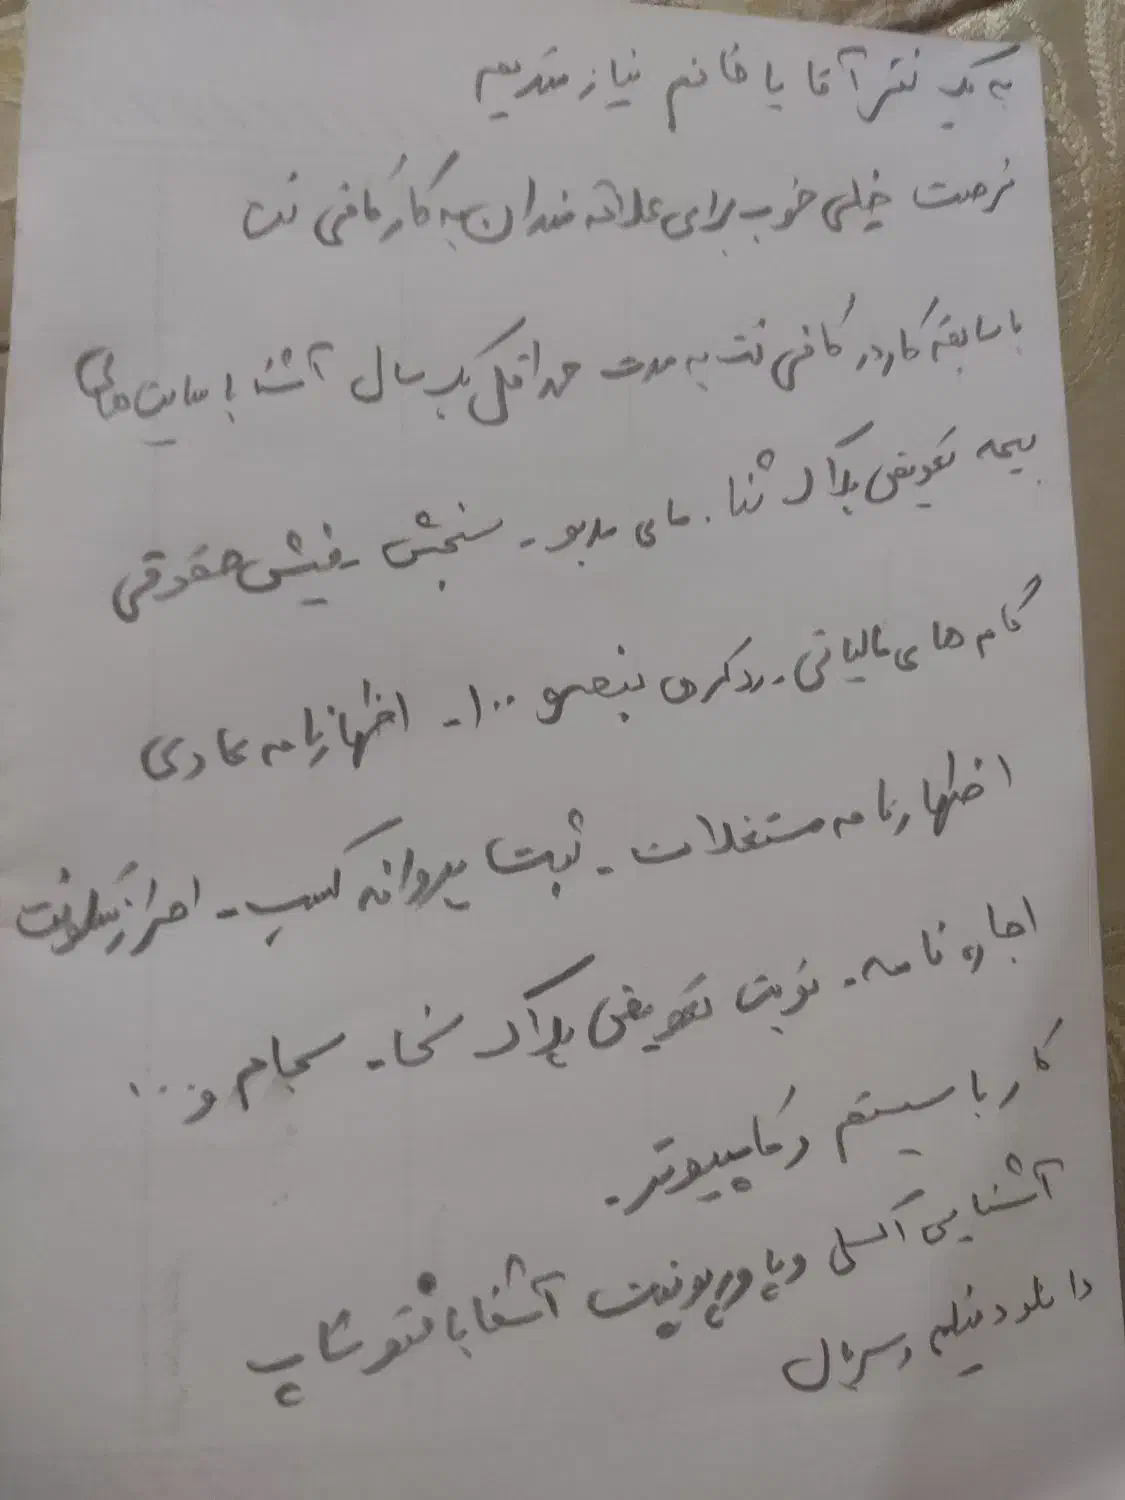 به یک نفر آقا یا خانم نیازمندیم
فرصت خیلی خوب برای علاقه مندان به کار کافی نت
با سابقه کار در کافی نت به مدت حداقل یک سال آشنا با سایت های
بیمه تعویض پلاک ثنا. مای مدیو - سنجش - فیش حقوقی
گام های مالیاتی - رد کردن تبصره ۱۰۰ - اظهارنامه عادی
اظهارنامه مستغلات - ثبت پروانه کسب - احراز سکونت
اجاره نامه - نوبت تعویض پلاک سخا - سجام و ...
کار با سیستم و کامپیوتر.
آشنایی اکسل و پاورپوینت آشنا با فتوشاپ
دانلود فیلم و سریال